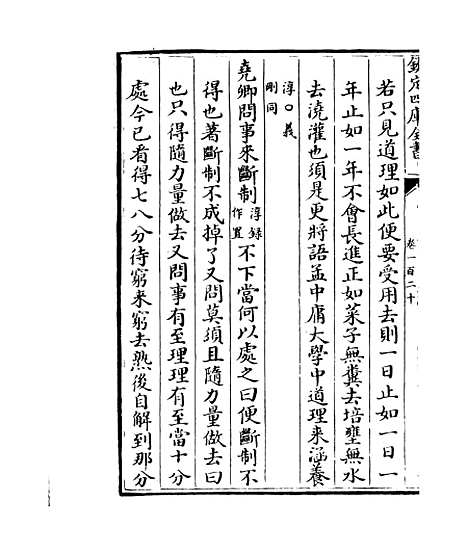 欽定四庫全書
卷一百二十
若只見道理如此便要受用去則一日止如一日一
年止如一年不會長進正如菜子無糞去培壅無水
去澆灌也須是更將語孟中庸大學中道理来涵養
淳口義
剛同
堯卿問事来斷制淳録作置不下當何以處之曰便斷制不
得也著斷制不成掉了又問莫須且隨力量做去曰
也只得隨力量做去又問事有至理理有至當十分
處今已看得七八分待窮来窮去熟後自解到那分